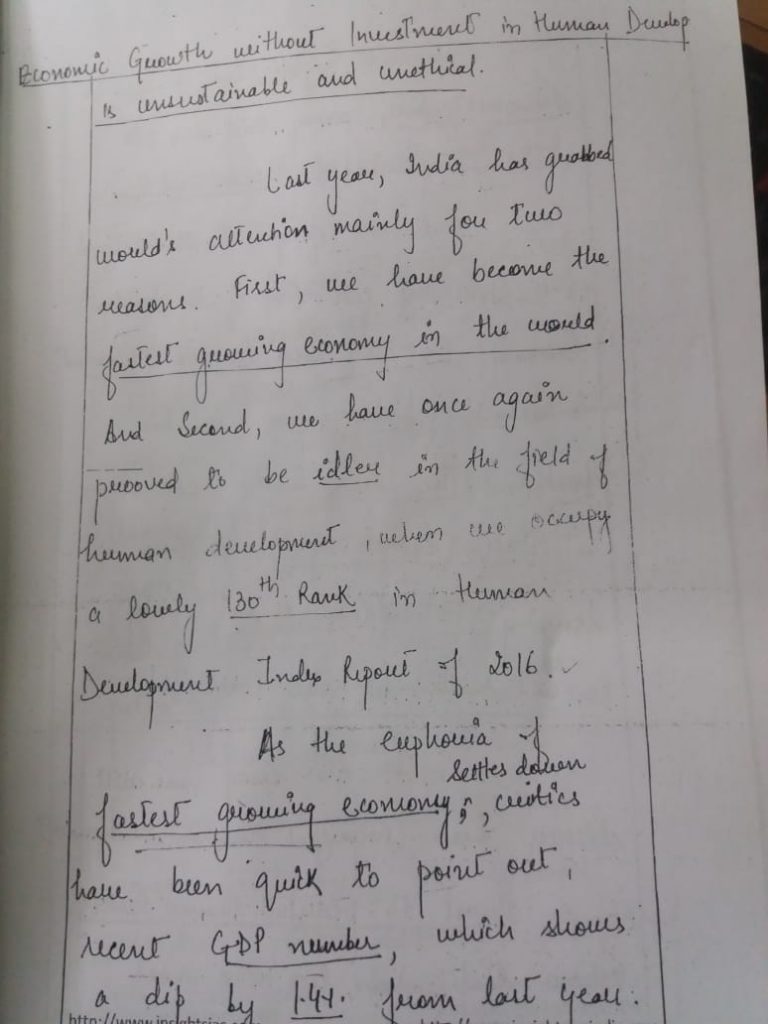 Economic Growth without Investment in Human Develop
is unsustainable and unethical.
Last year, India has grabbed
world's attention mainly for two
reasons. First, we have become the
fastest growing economy in the world.
And Second, we have once again
prooved to be idler in the field of
human development, when we occupy
a lowly 130th Rank in Human
Development Index Report of 2016.
As the euphoria of
settles down
fastest growing economy;, critics
have been quick to point out,
recent GDP number, which shows
a dip by 1.4%. from last year.